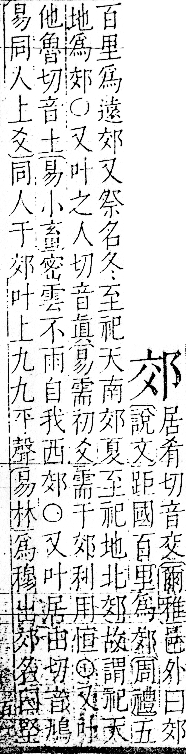 郊
居肴切音交爾雅邑外曰郊
說文距國百里爲郊周禮五
百里爲遠郊又祭名冬至祀天南郊夏至祀地北郊故謂祀天
地爲郊○又叶之人切音眞易需初爻需于郊利用恒○又叶
他魯切音土易小畜密雲不雨自我西郊○又叶居由切音鳩
易同人上爻同人于郊叶上九九平聲易林爲穆出郊名曰竪